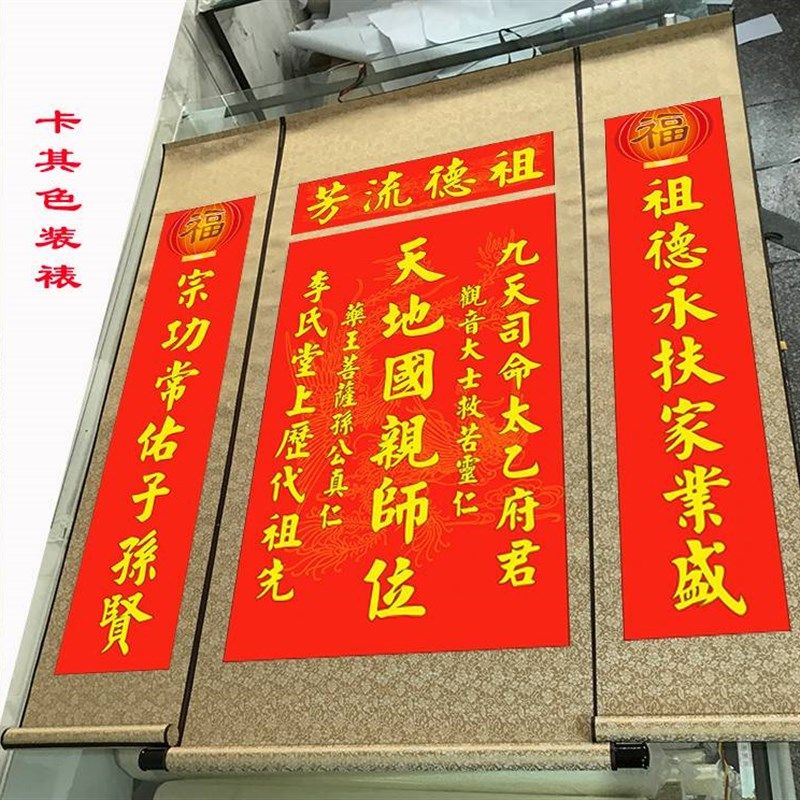 卡其色装裱
祖德流芳
福
祖德永扶家業盛
九天司命太乙府君
觀音大士救苦靈仁
天地國親師位
藥王菩薩孫公真仁
李氏堂上歷代祖先
福
宗功常佑子孫賢